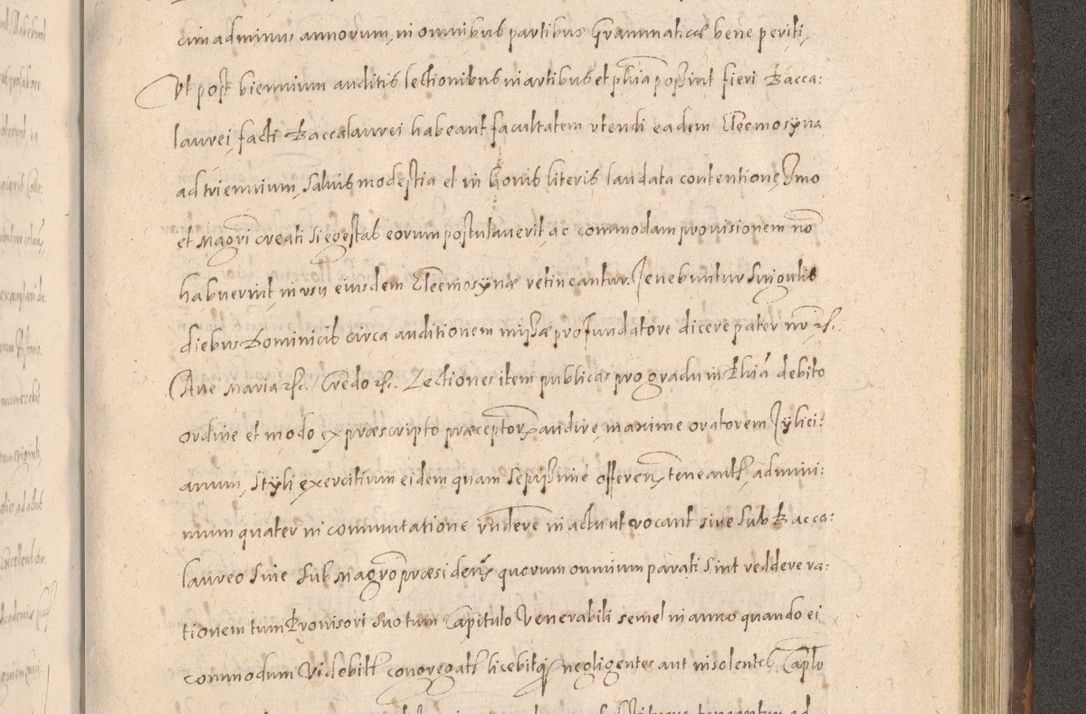 cim adminus annorum, in omnibus partibus Grammaticæ bene periti,
Vt post biennium auditis lectionibus in artibus et phia possint fieri Bacca:
laurei, facti Baccalaurei habeant facultatem vtendi eadem Eleemosyna
ad triennium, salvis modestia et in bonis literis laudata contentione, Imo
et magri creati si egestas eorum postulauerit, ac commodam prouisionem no
habuerint, in vsu eiusdem Eleemosynæ retineantur. Tenebuntur singulis
diebus Dominicis circa auditionem missæ pro fundatore dicere pater nr etc.
Aue Maria etc. Credo etc. Lectiones item publicas pro gradu in Phia debito
ordine et modo ex præscripto præceptor audire, maxime oratorem Tylici:
anum, styli exercitium eidem quam sepissime offeren, teneant, ad mini:
mum quater in commutatione
in actu ut vocant sive sub Bacca:
laureo siue sub magro præsiden, quorum omnium parati sint reddere ra:
tionem tum Prouisori suo tum Capitulo Venerabili semel in anno quando ei
commodum videbit congregat licebitq negligentes aut insolentes, Caplo